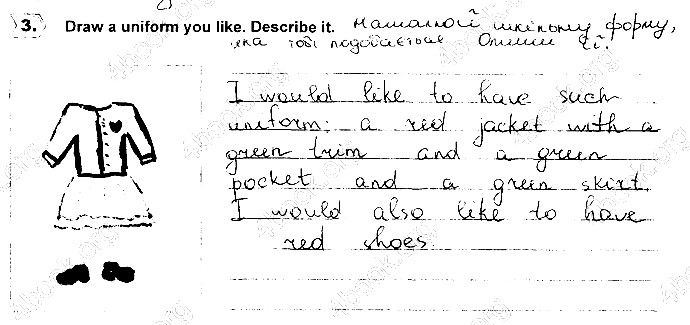 3. Draw a uniform you like. Describe it. Намалюй шкільну форму,
яка тобі подобається. Опиши її.
I would like to have such
uniform: a red jacket with a
green trim and a green
pocket and a green skirt.
I would also like to have
red shoes
4book.org